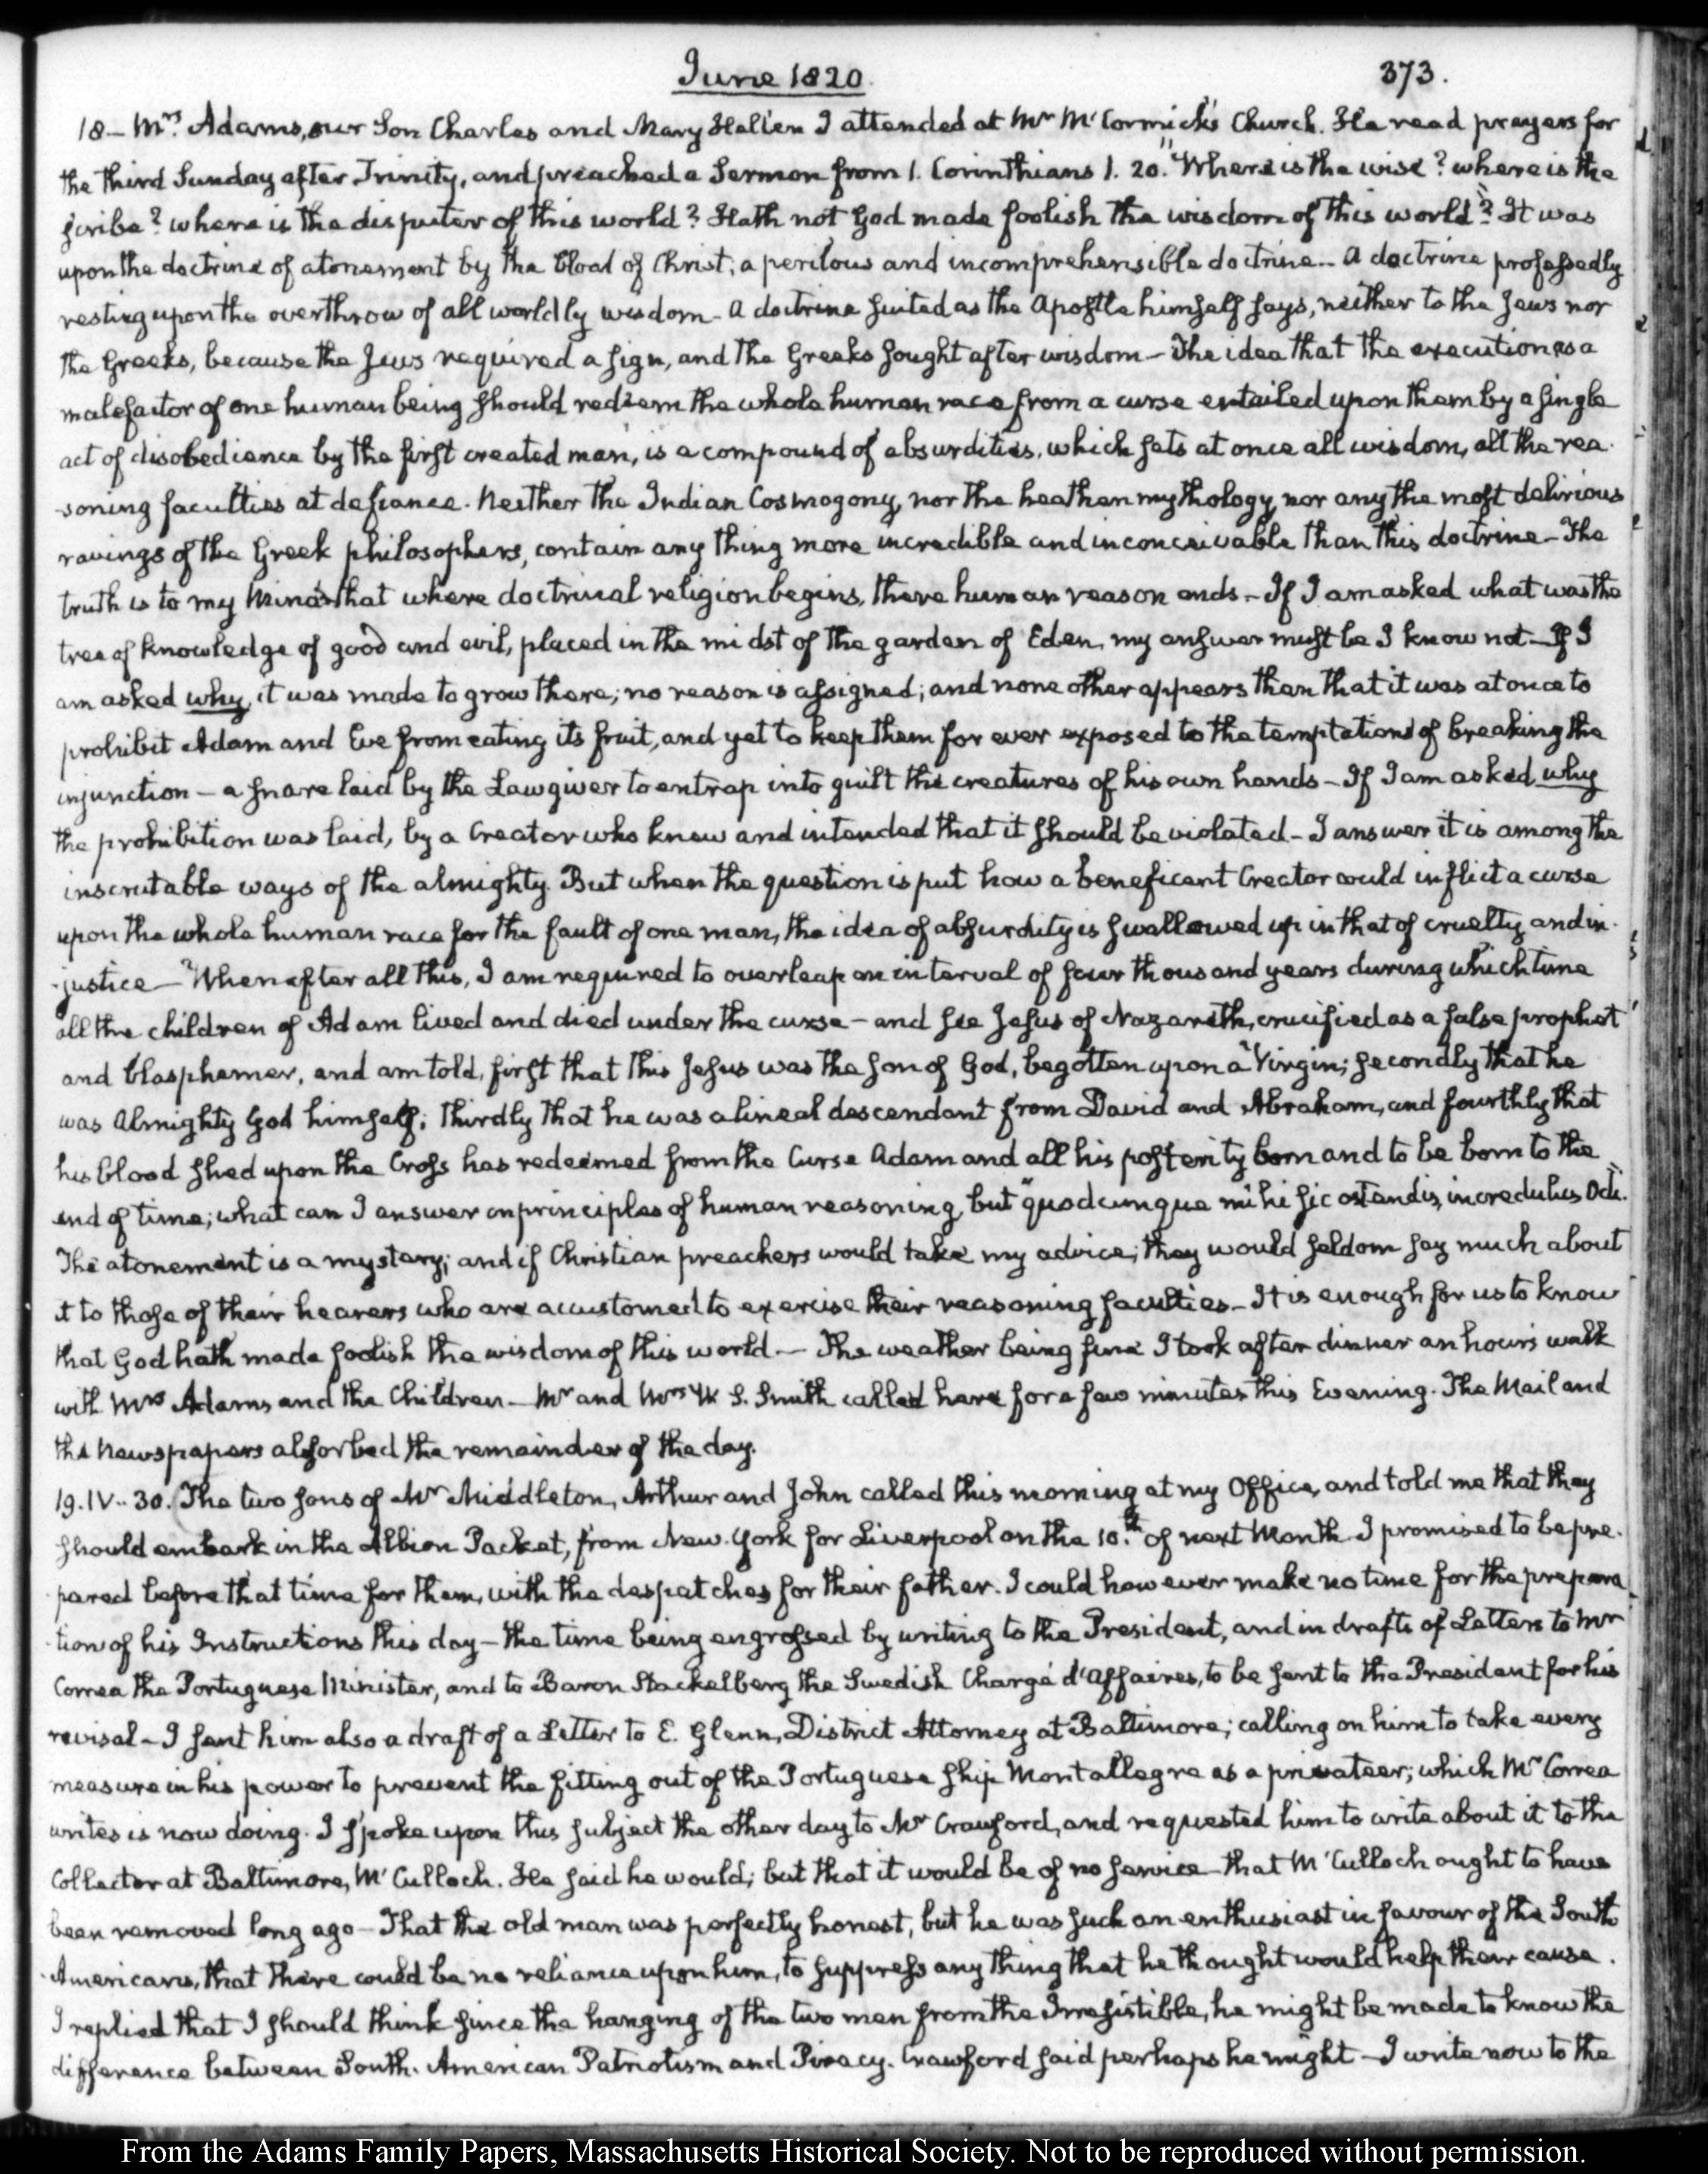 June 1820.
373.
18 – Mrs. Adams, our Son Charles and Mary Hellen I attended at Mr McCormick's Church. He read prayers for
the third Sunday after Trinity, and preached a Sermon from 1. Corinthians 1. 20. "Where is the wise? where is the
scribe? where is the disputer of this world? Hath not God made foolish the wisdom of this world"? It was
upon the doctrine of atonement by the blood of Christ; a perilous and incomprehensible doctrine – A doctrine professedly
resting upon the overthrow of all worldly wisdom – A doctrine suited as the Apostle himself says, neither to the Jews nor
the Greeks, because the Jews required a sign, and the Greeks sought after wisdom – The idea that the execution as a
malefactor of one human being should redeem the whole human race from a curse entailed upon them by a single
act of disobedience by the first created man, is a compound of absurdities, which sets at once all wisdom, all the rea-
-soning faculties at defiance. Neither the Indian Cosmogony, nor the heathen mythology, nor any the most delirious
ravings of the Greek philosophers, contain any thing more incredible and inconceivable than this doctrine – The
truth is to my Mind that where doctrinal religion begins, there human reason ends – If I am asked what was the
tree of knowledge of good and evil, placed in the midst of the garden of Eden, my answer must be I know not – If I
am asked why, it was made to grow there; no reason is assigned; and none other appears than that it was at once to
prohibit Adam and Eve from eating its fruit, and yet to keep them for ever exposed to the temptations of breaking the
injunction – a snare laid by the Lawgiver to entrap into guilt the creatures of his own hands – If I am asked why
the prohibition was laid, by a Creator who knew and intended that it should be violated – I answer it is among the
inscrutable ways of the almighty. But when the question is put how a beneficent Creator could inflict a curse
upon the whole human race for the fault of one man, the idea of absurdity is swallowed up in that of cruelty and in-
-justice – When after all this, I am required to overleap an interval of four thousand years during which time
all the children of Adam lived and died under the curse – and see Jesus of Nazareth, crucified as a false prophet
and blasphemer, and am told, first that this Jesus was the son of God, begotten upon a Virgin; secondly that he
was Almighty God himself; thirdly that he was a lineal descendant from David and Abraham, and fourthly that
his blood shed upon the Cross has redeemed from the Curse Adam and all his posterity born and to be born to the
end of time; what can I answer on principles of human reasoning, but "quodcunque mihi sic ostendis, incredulus Odi."
The atonement is a mystery; and if Christian preachers would take my advice, they would seldom say much about
it to those of their hearers who are accustomed to exercise their reasoning faculties – It is enough for us to know
that God hath made foolish the wisdom of this world – The weather being fine I took after dinner an hour's walk
with Mrs Adams and the Children – Mr and Mrs W. S. Smith called here for a few minutes this Evening. The Mail and
the Newspapers absorbed the remainder of the day.
19. IV.. 30. The two sons of Mr Middleton, Arthur and John called this morning at my Office, and told me that they
should embark in the Albion Packet, from New-York for Liverpool on the 10th of next Month. I promised to be pre-
-pared before that time for them, with the despatches for their father. I could however make no time for the prepara-
-tion of his Instructions this day – the time being engrossed by writing to the President, and in drafts of Letters to Mr
Correa the Portuguese Minister, and to Baron Stackelberg the Swedish Chargé d'Affaires, to be sent to the President for his
revisal – I sent him also a draft of a Letter to E. Glenn, District Attorney at Baltimore; calling on him to take every
measure in his power to prevent the fitting out of the Portuguese ship Montallegre as a privateer; which Mr Correa
writes is now doing. I spoke upon this subject the other day to Mr Crawford, and requested him to write about it to the
Collector at Baltimore, McCulloch. He said he would; but that it would be of no service – that McCulloch ought to have
been removed long ago – That the old man was perfectly honest, but he was such an enthusiast in favour of the South
Americans, that there could be no reliance upon him, to suppress any thing that he thought would help their cause.
I replied that I should think since the hanging of the two men from the Irresistible, he might be made to know the
difference between South-American Patriotism and Piracy. Crawford said perhaps he might – I write now to the
From the Adams Family Papers, Massachusetts Historical Society. Not to be reproduced without permission.